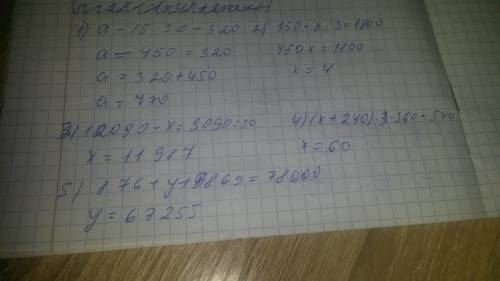 1) a - 15 · 30 = 320
a - 450 = 320
a = 320 + 450
a = 770
2) 150 · x · 3 = 1800
450 x = 1800
x = 4
3) 12090 - x = 3090 : 30
x = 11 987
4) (x + 240) · 3 - 360 = 540
x = 60
5) 876 + y + 9869 = 78000
y = 67255